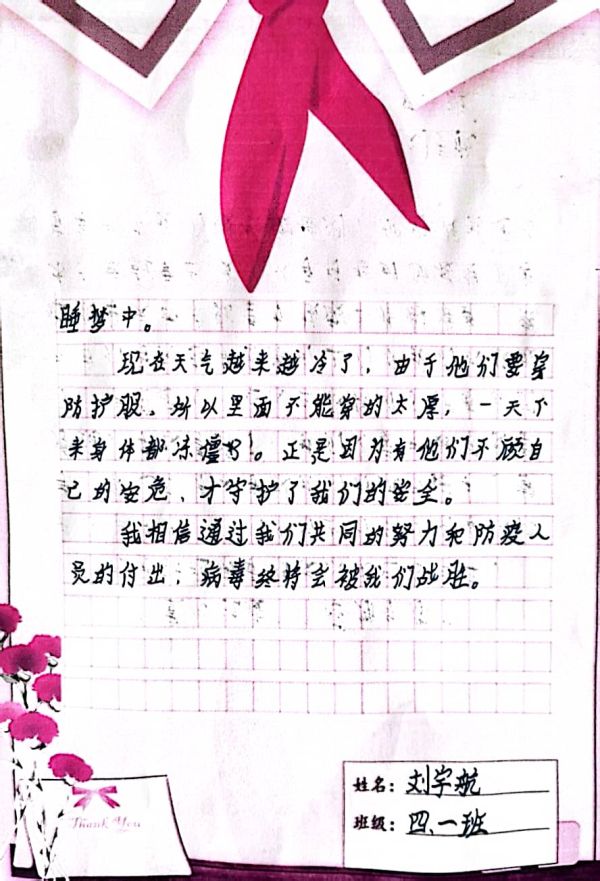 睡梦中。
现在天气越来越冷了，由于他们要穿
防护服，所以里面不能穿的太厚，一天下
来身体都冻僵了。正是因为有他们不顾自
己的安危，才守护了我们的安全。
我相信通过我们共同的努力和防疫人
员的付出，病毒终将会被我们战胜。
姓名：刘宇航
班级：四、一班
Thank You